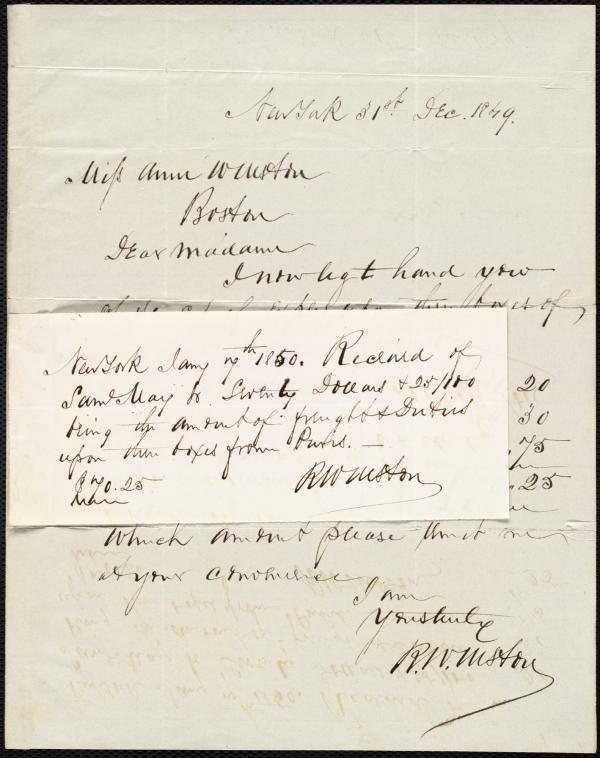 New York 31st. Dec. 1849.
Miss Anne W Weston
Boston
Dear Madame
I now hand you
three boxes of
New York Jany 7th 1850. Received of
Saml May Jr. Seventy Dollars & 25/100
being the amount of freight & Duties
upon three boxes from Paris. —
$70.25
R W Weston
20
30
.75
.25
Which amount please remit me
at your convenience
I am
Yours truly
R. W. Weston